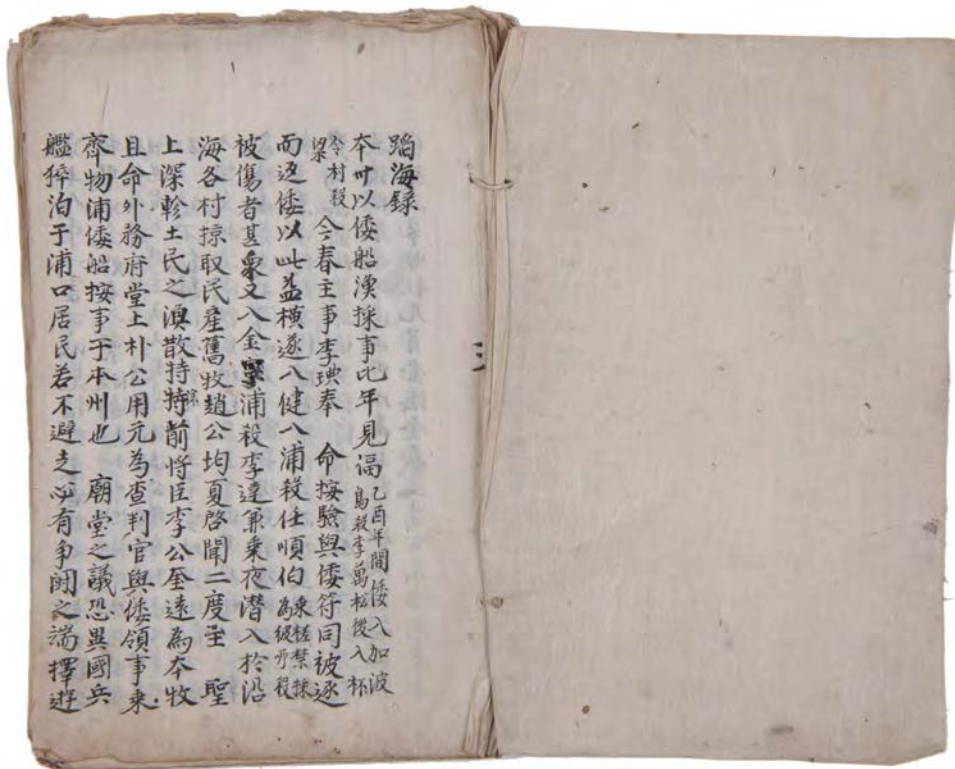 蹈海錄
夲州以倭船漁採事比年見漏乙酉年間倭入加波
島殺李萬松後入杯
令村殺
梁 今春主事李㻴奉 命按驗與倭符同被逐
而返倭以此益橫遂入健入浦殺任順伯乘槎禁採
為縱所殺
被傷者甚衆又入金寧浦殺李達兼乘夜潜入於沿
海各村掠取民產舊牧趙公均夏啓聞二度至 聖
上深軫土民之渙散特除前將臣李公奎遠為夲牧
且命外務府堂上朴公用元為查判官與倭領事乘
齊物浦倭船按事于本州也 廟堂之議恐異國兵
艦猝泊于浦口居民若不避走必有爭鬨之端擇遊